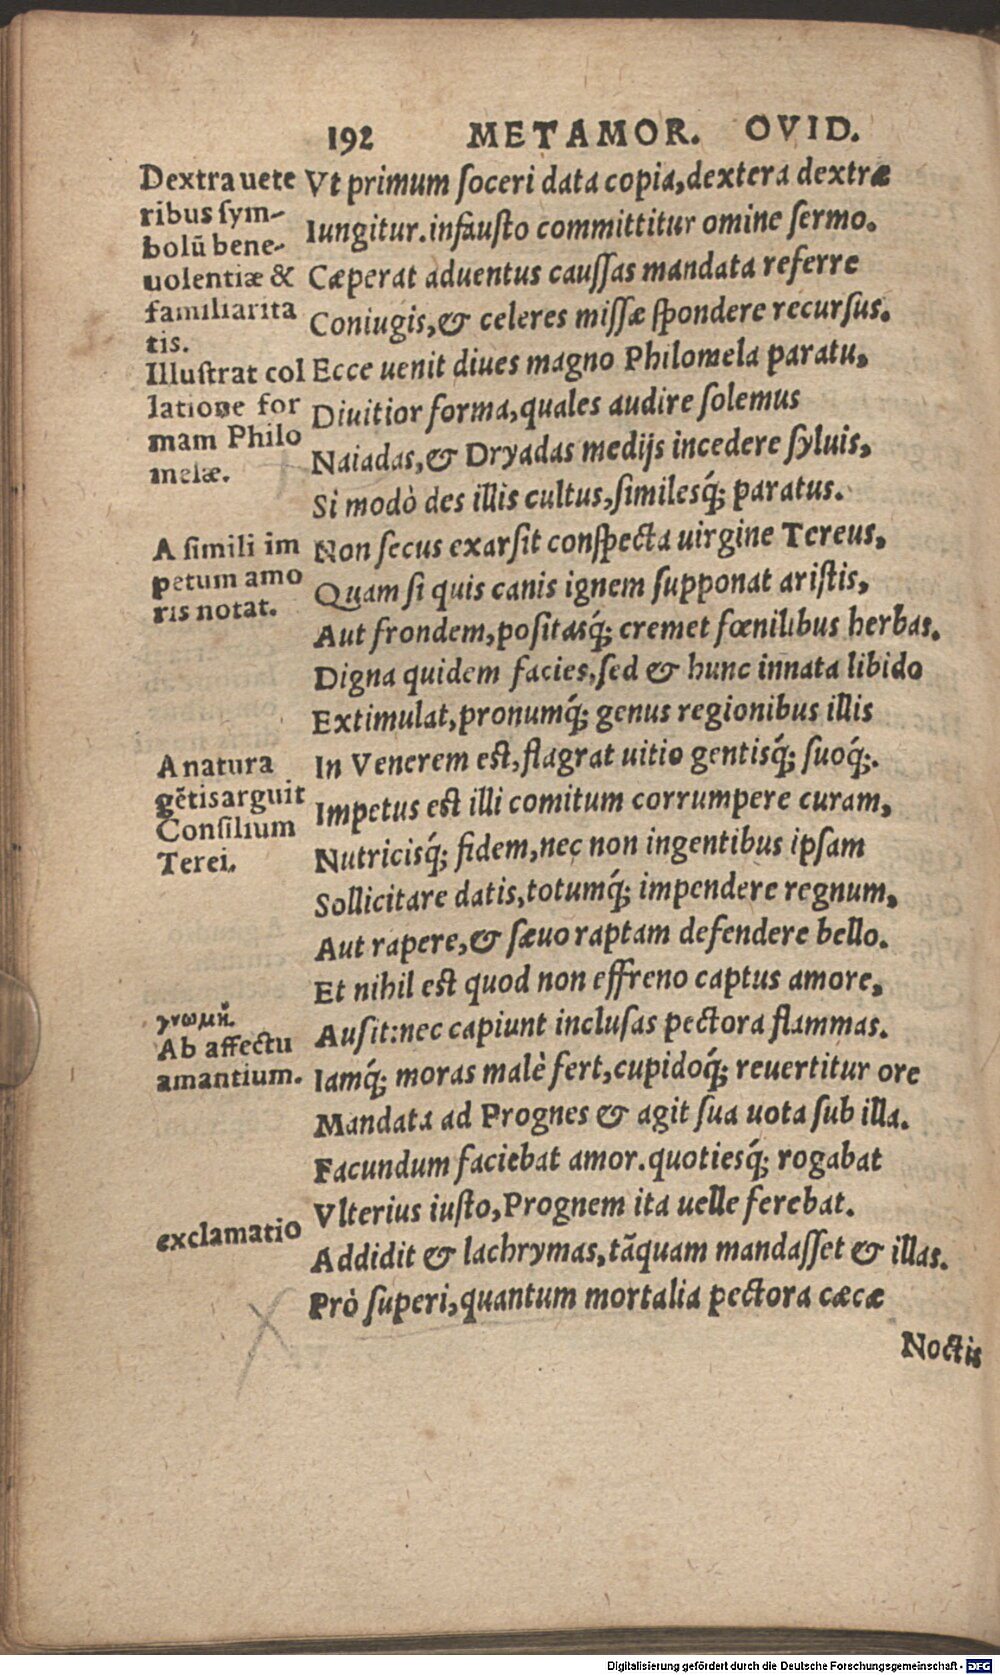 192 METAMOR. OVID.
Dextra uete
ribus ſym-
bolū bene-
uolentiæ &
familiarita
tis.
Illuſtrat col
latione for
mam Philo
melæ.
A ſimili im
petum amo
ris notat.
A natura
gētis arguit
Conſilium
Terei.
γνωμὴ.
Ab affectu
amantium.
exclamatio
Vt primum ſoceri data copia, dextera dextræ
Iungitur. infauſto committitur omine ſermo.
Cæperat aduentus cauſſas mandata referre
Coniugis, & celeres miſſæ ſpondere recurſus.
Ecce uenit diues magno Philomela paratu,
Diuitior forma, quales audire ſolemus
Naiadas, & Dryadas medijs incedere ſyluis,
Si modò des illis cultus, ſimilesq́; paratus.
Non ſecus exarſit conſpecta uirgine Tereus,
Quam ſi quis canis ignem ſupponat ariſtis,
Aut frondem, poſitasq́; cremet fœnilibus herbas.
Digna quidem facies, ſed & hunc innata libido
Extimulat, pronumq́; genus regionibus illis
In Venerem eſt, flagrat uitio gentisq́; ſuoq́;.
Impetus eſt illi comitum corrumpere curam,
Nutricisq́; fidem, nec non ingentibus ipſam
Sollicitare datis, totumq́; impendere regnum,
Aut rapere, & ſæuo raptam defendere bello.
Et nihil eſt quod non effreno captus amore,
Auſit: nec capiunt incluſas pectora flammas.
Iamq́; moras malè fert, cupidoq́; reuertitur ore
Mandata ad Prognes & agit ſua uota ſub illa.
Facundum faciebat amor. quotiesq́; rogabat
Vlterius iuſto, Prognem ita uelle ferebat.
Addidit & lachrymas, tāquam mandaſſet & illas.
Prò ſuperi, quantum mortalia pectora cæcæ
Noctis
Digitalisierung gefördert durch die Deutsche Forschungsgemeinschaft - DFG